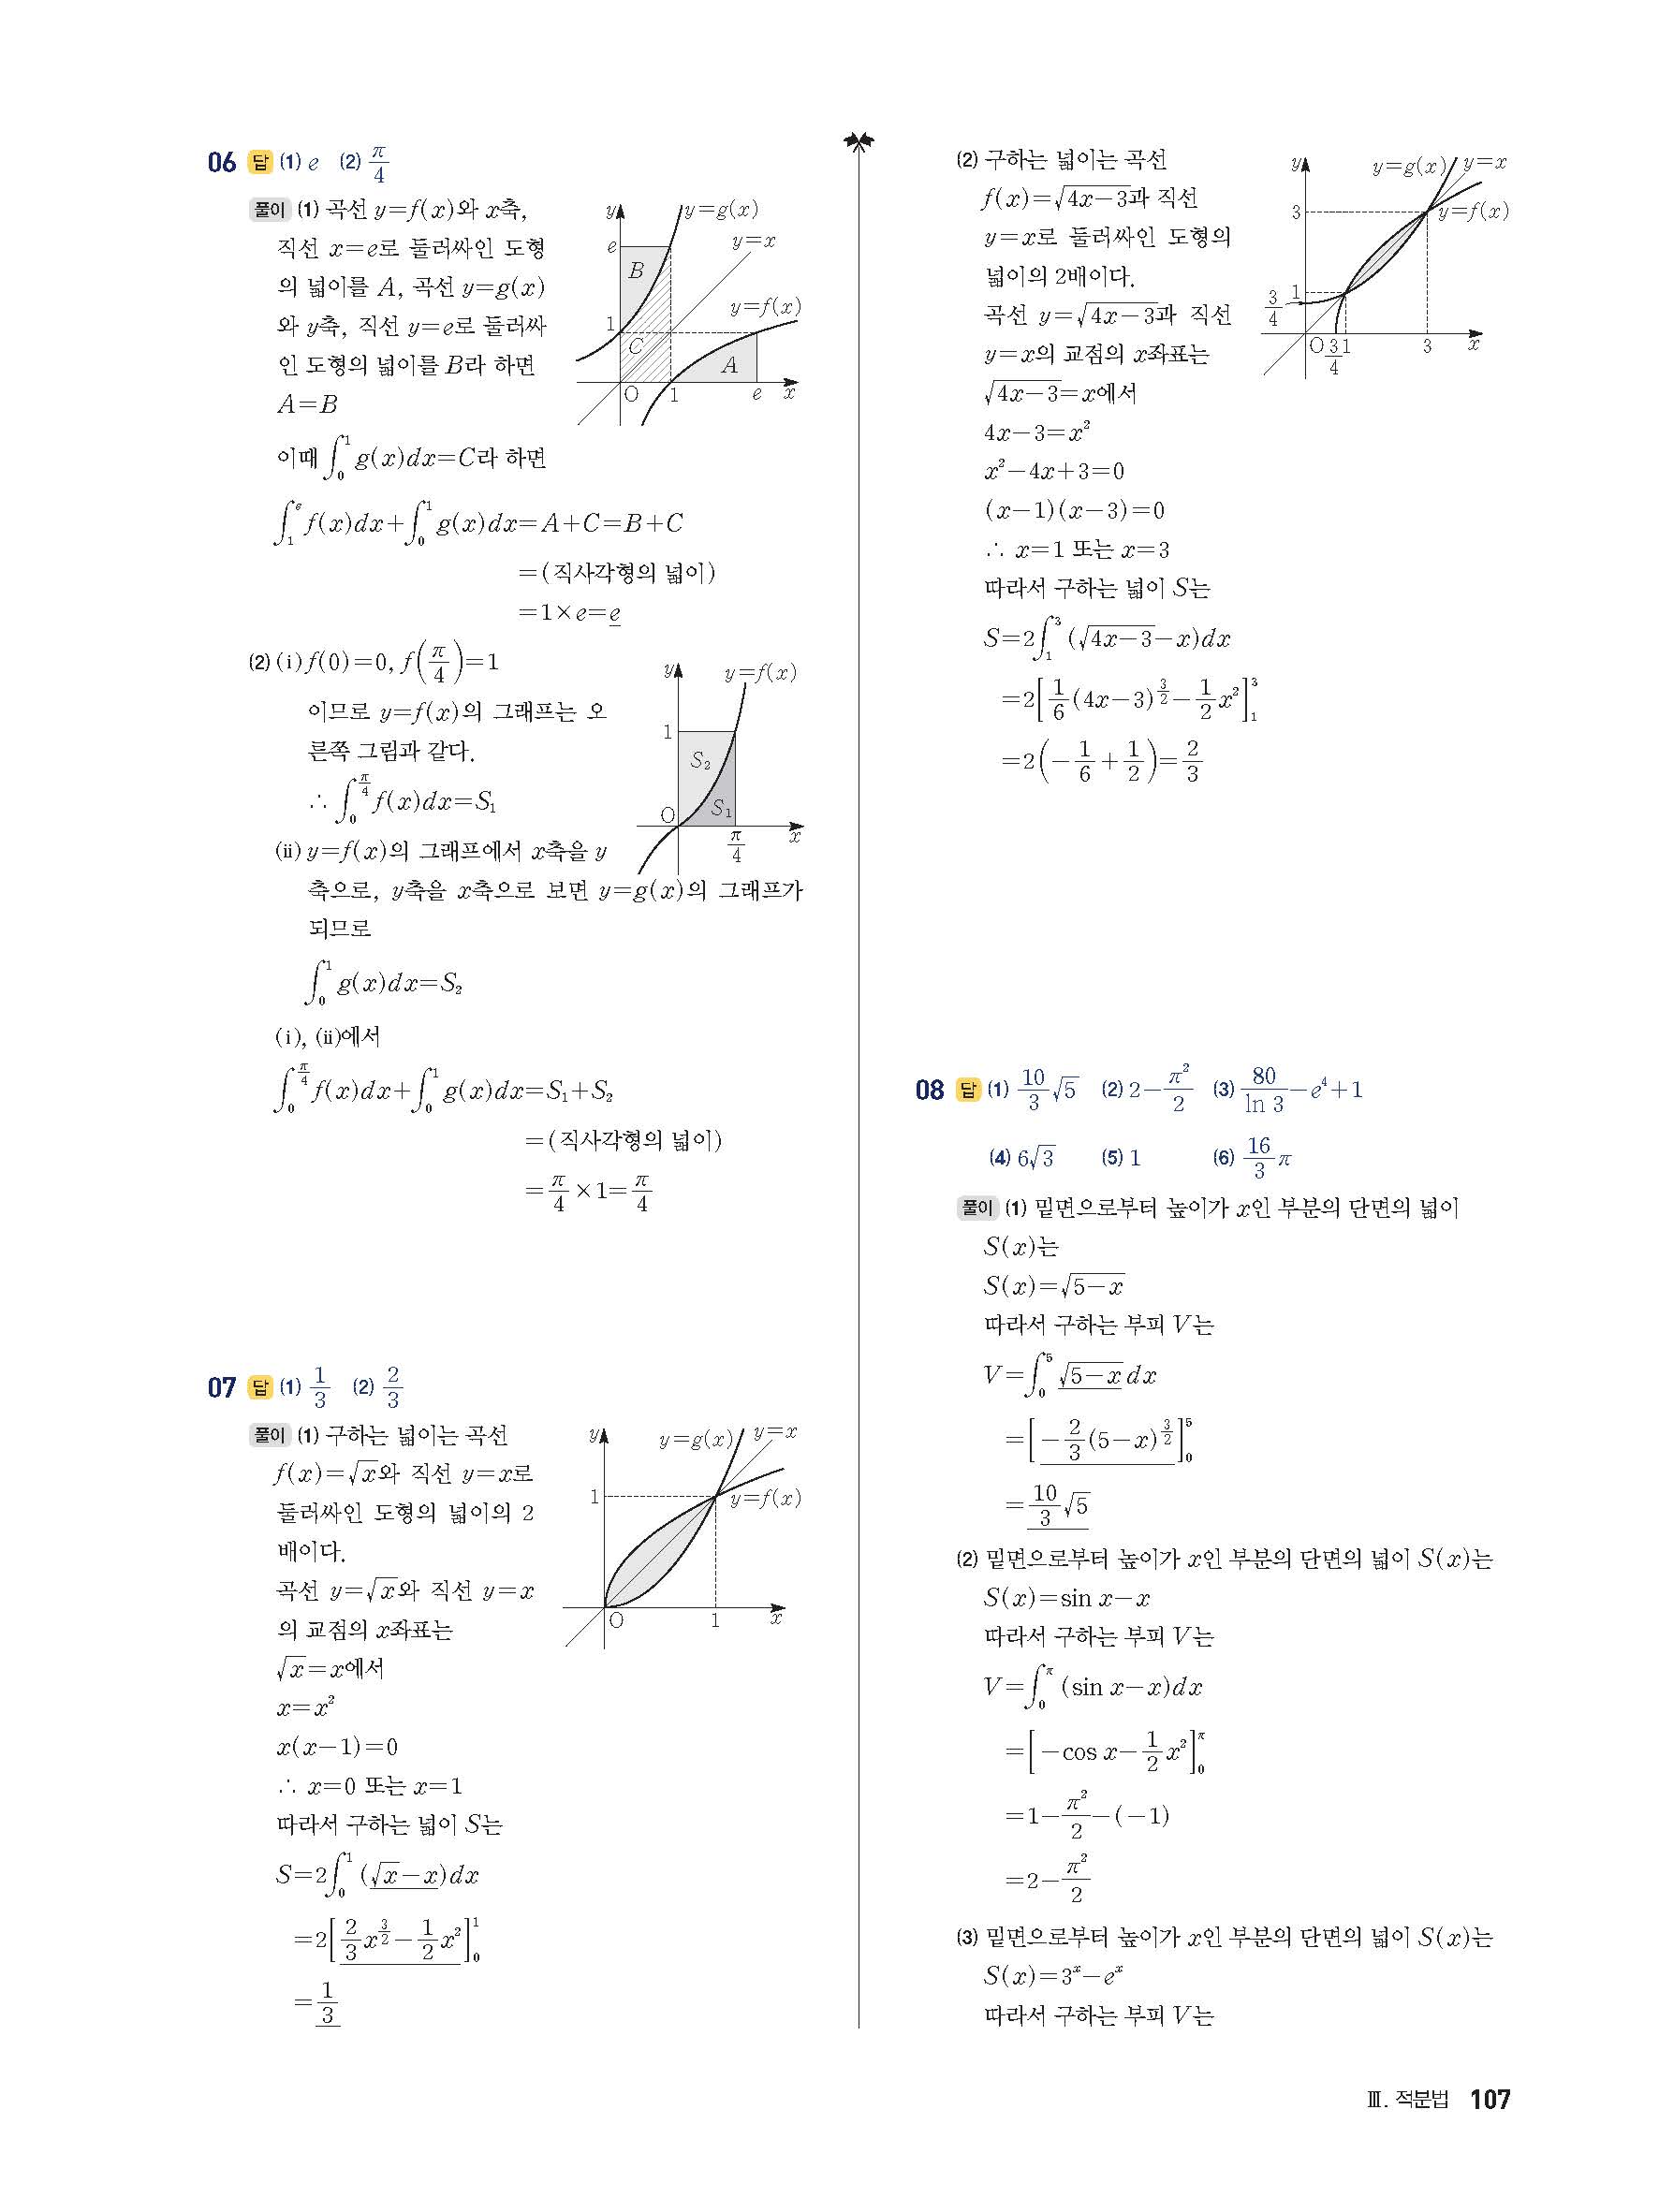 06 답 (1) e (2) π/4
풀이 (1) 곡선 y=f(x)와 x축,
직선 x=e로 둘러싸인 도형
의 넓이를 A, 곡선 y=g(x)
와 y축, 직선 y=e로 둘러싸
인 도형의 넓이를 B라 하면
A=B
y y=g(x)
e y=x
B
y=f(x)
1
C A
O 1 e x
이때 ∫₀¹ g(x)dx=C라 하면
∫₁ᵉ f(x)dx+∫₀¹ g(x)dx=A+C=B+C
=(직사각형의 넓이)
=1×e=e
(2) (ⅰ) f(0)=0, f(π/4)=1
이므로 y=f(x)의 그래프는 오
른쪽 그림과 같다.
∴ ∫₀^(π/4) f(x)dx=S₁
y y=f(x)
1
S₂
O S₁
π/4 x
(ⅱ) y=f(x)의 그래프에서 x축을 y
축으로, y축을 x축으로 보면 y=g(x)의 그래프가
되므로
∫₀¹ g(x)dx=S₂
(ⅰ), (ⅱ)에서
∫₀^(π/4) f(x)dx+∫₀¹ g(x)dx=S₁+S₂
=(직사각형의 넓이)
=π/4×1=π/4
07 답 (1) 1/3 (2) 2/3
풀이 (1) 구하는 넓이는 곡선
f(x)=√x와 직선 y=x로
둘러싸인 도형의 넓이의 2
배이다.
곡선 y=√x와 직선 y=x
의 교점의 x좌표는
y y=g(x) y=x
1 y=f(x)
O 1 x
√x=x에서
x=x²
x(x-1)=0
∴ x=0 또는 x=1
따라서 구하는 넓이 S는
S=2∫₀¹ (√x-x)dx
=2[2/3 x^(3/2)-1/2 x²]₀¹
=1/3
(2) 구하는 넓이는 곡선
f(x)=√(4x-3)과 직선
y=x로 둘러싸인 도형의
넓이의 2배이다.
곡선 y=√(4x-3)과 직선
y=x의 교점의 x좌표는
y y=g(x) y=x
3 y=f(x)
3/4 1
O 3/4 1 3 x
√(4x-3)=x에서
4x-3=x²
x²-4x+3=0
(x-1)(x-3)=0
∴ x=1 또는 x=3
따라서 구하는 넓이 S는
S=2∫₁³ (√(4x-3)-x)dx
=2[1/6(4x-3)^(3/2)-1/2 x²]₁³
=2(-1/6+1/2)=2/3
08 답 (1) 10/3 √5 (2) 2-π²/2 (3) 80/ln 3-e⁴+1
(4) 6√3 (5) 1 (6) 16/3 π
풀이 (1) 밑면으로부터 높이가 x인 부분의 단면의 넓이
S(x)는
S(x)=√(5-x)
따라서 구하는 부피 V는
V=∫₀⁵ √(5-x) dx
=[-2/3(5-x)^(3/2)]₀⁵
=10/3 √5
(2) 밑면으로부터 높이가 x인 부분의 단면의 넓이 S(x)는
S(x)=sin x-x
따라서 구하는 부피 V는
V=∫₀^π (sin x-x)dx
=[-cos x-1/2 x²]₀^π
=1-π²/2-(-1)
=2-π²/2
(3) 밑면으로부터 높이가 x인 부분의 단면의 넓이 S(x)는
S(x)=3ˣ-eˣ
따라서 구하는 부피 V는
Ⅲ. 적분법 107